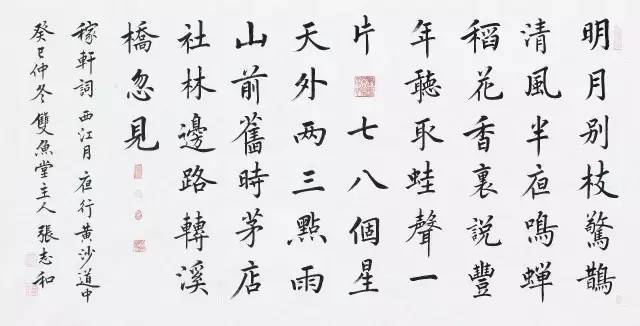 明月别枝驚鵲
清風半夜鳴蝉
稻花香裏說豐
年聽取蛙聲一
片七八個星
天外两三點雨
山前舊時茅店
社林邊路轉溪
橋忽見
稼軒詞西江月夜行黄沙道中
癸巳仲冬雙魚堂主人張志和